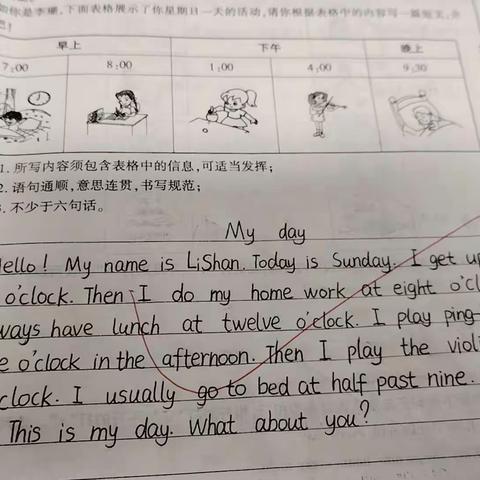 你是李珊,下面表格展示了你星期日一天的活动,请你根据表格中的内容写一篇短文,介
吧!
早上 下午 晚上
7:00 8:00 1:00 4:00 9:30
1. 所写内容须包含表格中的信息,可适当发挥;
2. 语句通顺,意思连贯,书写规范;
3. 不少于六句话。
My day
Hello! My name is LiShan. Today is Sunday. I get up
o'clock. Then I do my home work at eight o'cl
ways have lunch at twelve o'clock. I play ping-
e o'clock in the afternoon. Then I play the viol
clock. I usually go to bed at half past nine.
This is my day. What about you?